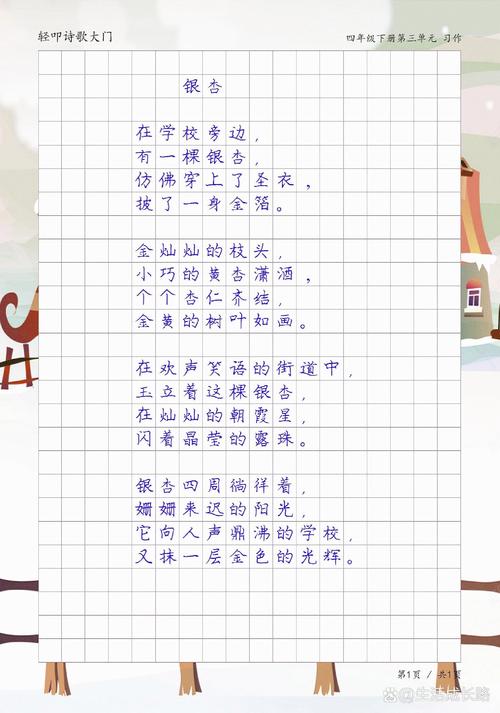 轻叩诗歌大门
四年级下册第三单元 习作
银杏
在学校旁边，
有一棵银杏，
仿佛穿上了圣衣，
披了一身金箔。
金灿灿的枝头，
小巧的黄杏潇洒，
个个杏仁齐结，
金黄的树叶如画。
在欢声笑语的街道中，
玉立着这棵银杏，
在灿灿的朝霞星，
闪着晶莹的露珠。
银杏四周徜徉着，
姗姗来迟的阳光，
它向人声鼎沸的学校，
又抹一层金色的光辉。
第1页 / 共1页
生活成长路